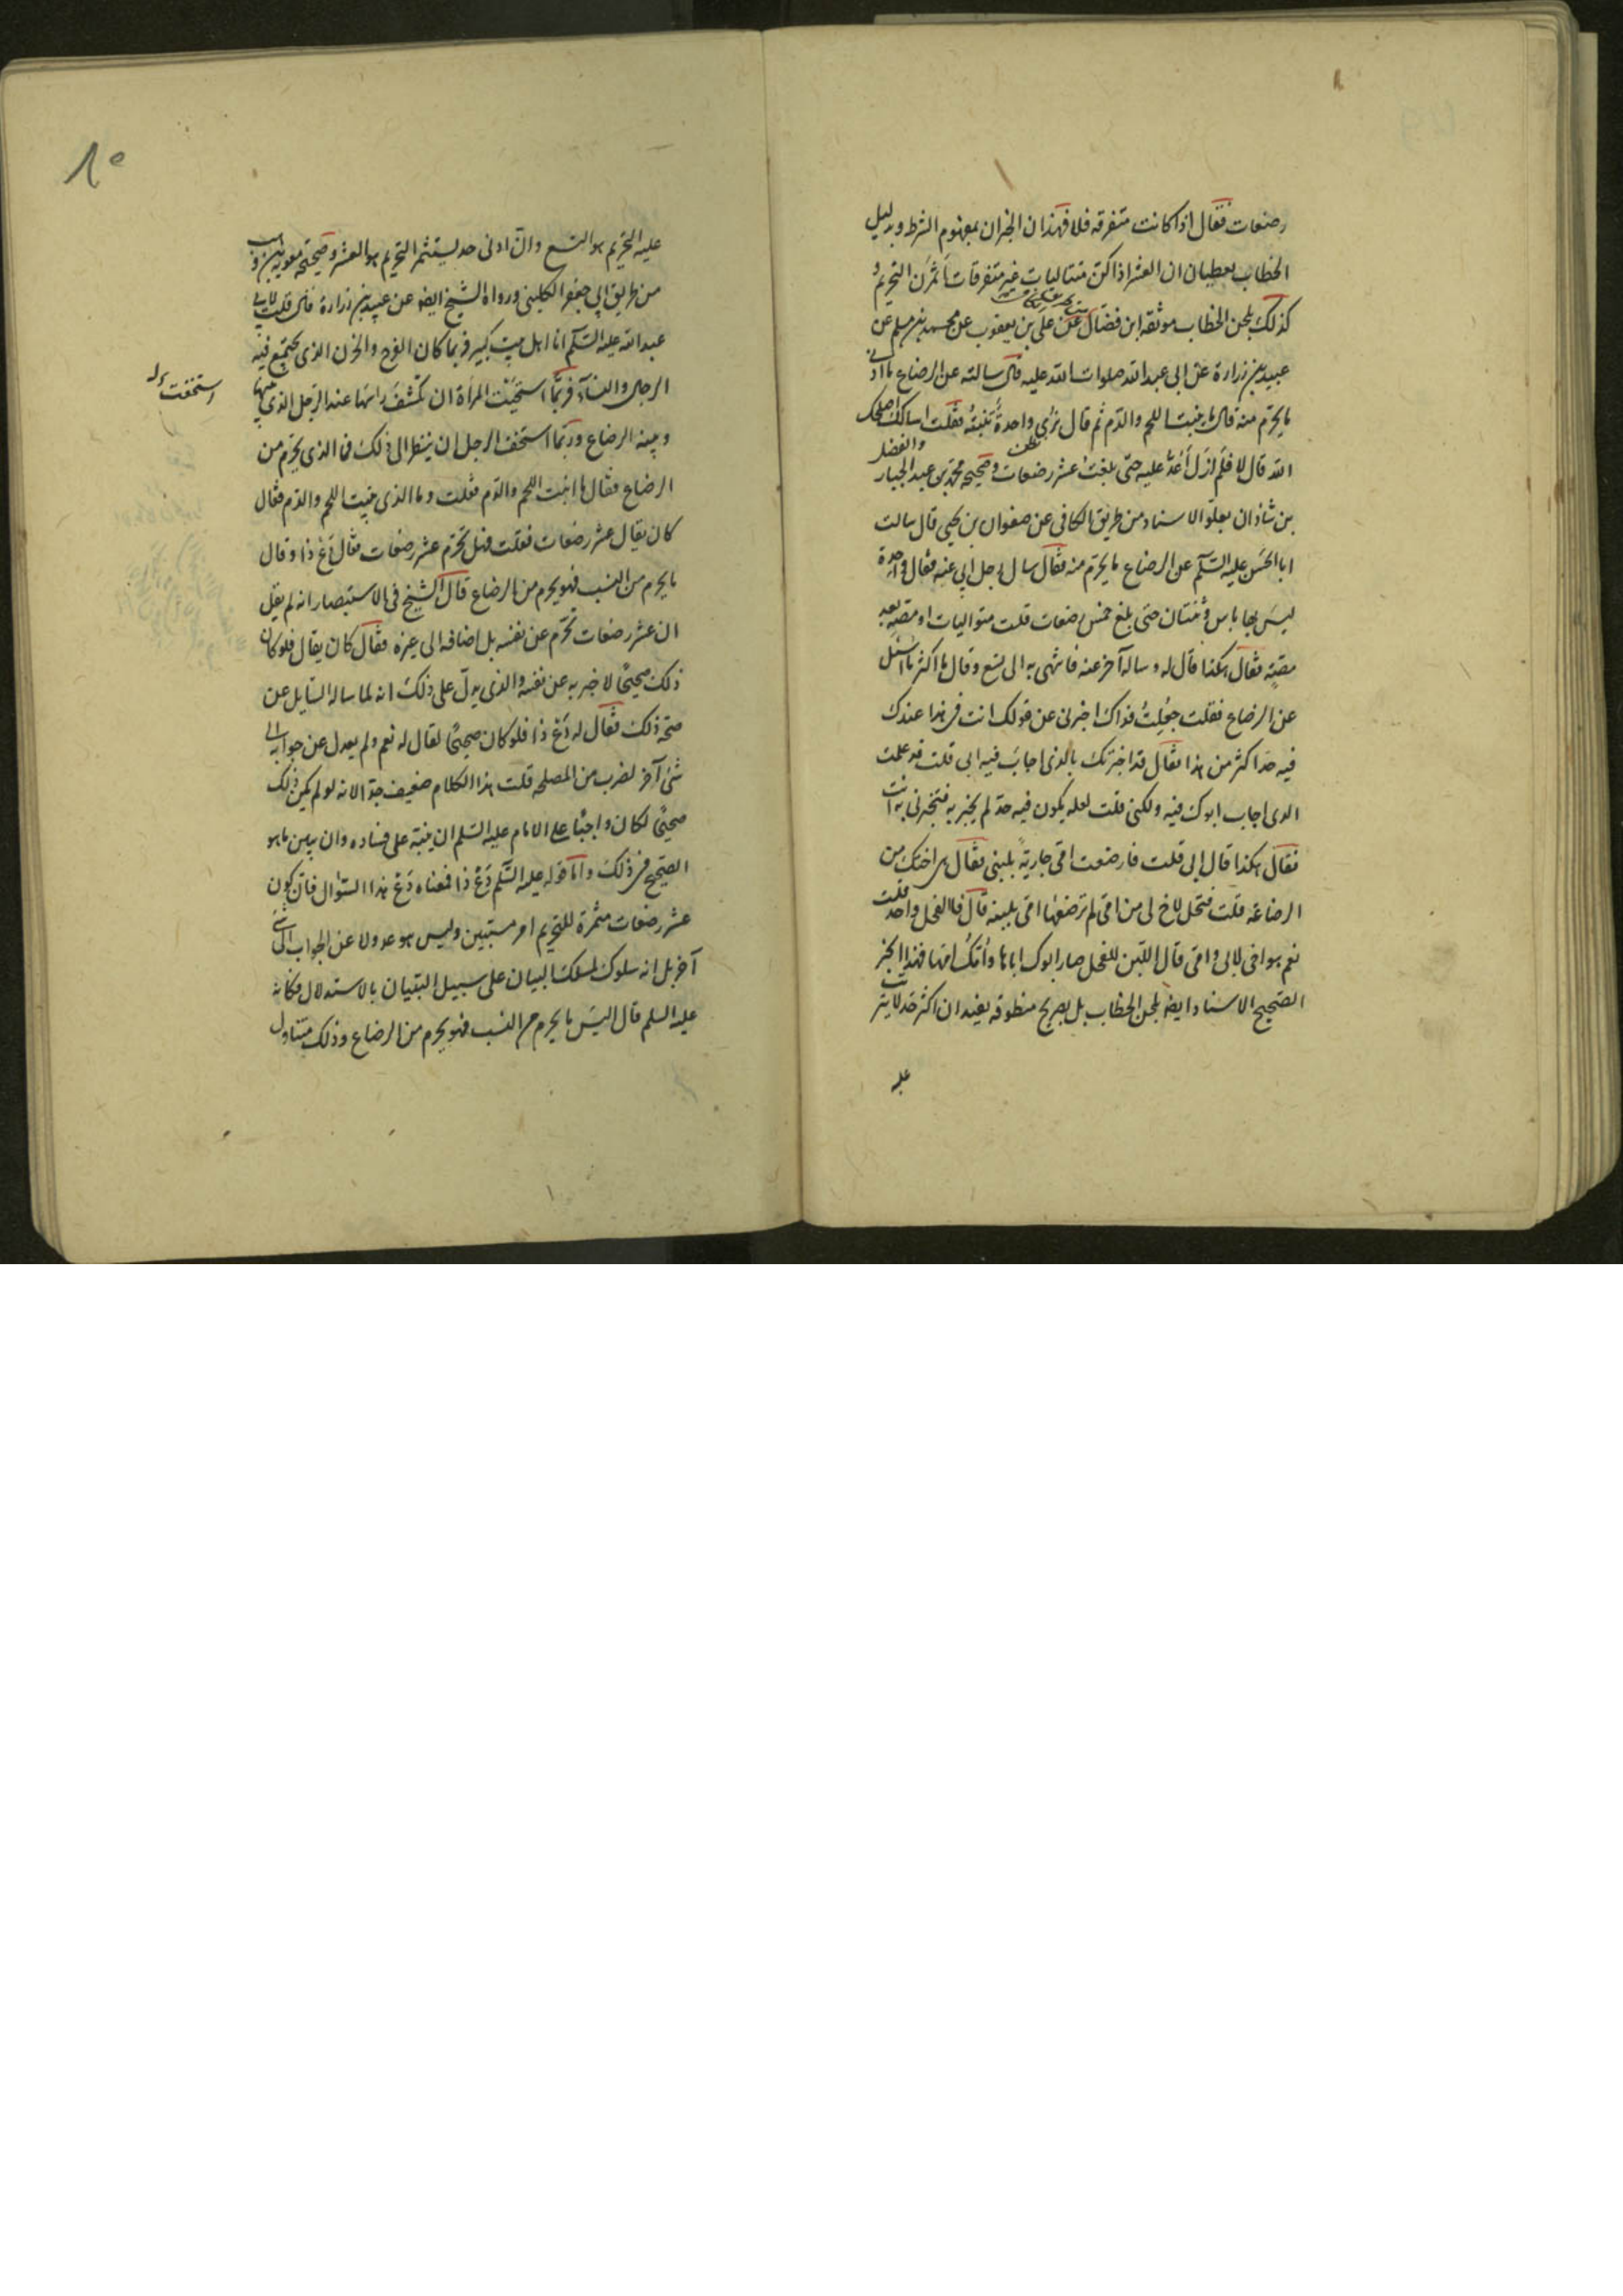 رضعات فقال اذا كانت متفرقه فلا فهذان الخبران بمفهوم الشرط وبدليل
الخطاب يعطيان ان العشر اذا كن متتاليات غير متفرقات اثمرن التحريم و
كذلك بلحن الخطاب موثقه ابن فضال عن علي بن يعقوب عن محمد بن مسلم عن
عبيد بن زرارة عن ابى عبد الله صلوات الله عليه قال سالته عن الرضاع ما ادنى
ما يحرم منه قال ما ينبت اللحم والدم ثم قال ترى واحدة تنبته فقلت اسالك اصلحك
الله قال لا فلم ازل اعد عليه حتى بلغت عشر رضعات وصحيحه محمد بن عبد الجبار والفضل
بن شاذان بعلو الاسناد من طريق الكافى عن صفوان بن يحيى قال سالت
ابا الحسن عليه السلم عن الرضاع ما يحرم منه فقال سال رجل ابى عنه فقال واحدة
ليس بها باس وثنتان حتى بلغ خمس رضعات قلت متواليات او مصة بعد
مصة فقال هكذا قال له وساله آخر عنه فانتهى به الى تسع وقال ما اكثر ما اسئل
عن الرضاع فقلت جعلت فداك اخبرنى عن قولك انت فى هذا عندك
فيه حد اكثر من هذا فقال قد اخبرتك بالذى اجاب فيه ابى قلت قد علمت
الذى اجاب ابوك فيه ولكنى قلت لعله يكون فيه حد لم يخبر به فتخبرنى به انت
فقال هكذا قال ابى قلت فارضعت امى جارية بلبنى فقال هى اختك من
الرضاعة قلت فتحل لاخ لى من امى لم ترضعها امى بلبنه قال فالفحل واحد قلت
نعم هو اخى لابى وامى قال اللبن للفحل صار ابوك اباها وامك امها فهذا الخبر
الصحيح الاسناد ايضا بلحن الخطاب بل بصريح منطوقه يفيد ان اكثر حد لا يترتب
عليه
عليه التحريم هو التسع وان ادنى حد يستثمر التحريم هو العشر وصحيحة معوية بن وهب
من طريق ابى جعفر الكلينى ورواه الشيخ ايضا عن عبيد بن زرارة قال قلت لابى
عبد الله عليه السلم انا اهل بيت كبير فربما كان الفرح والحزن الذى يجتمع فيه
الرجال والنساء فربما استحيت المراة ان تكشف راسها عند الرجل الذى بينها
وبينه الرضاع وربما استخف الرجل ان ينظر الى ذلك فما الذى يحرم من
الرضاع فقال ما انبت اللحم والدم فقلت وما الذى ينبت اللحم والدم فقال
كان يقال عشر رضعات فقلت فهل تحرم عشر رضعات فقال دع ذا وقال
ما يحرم من النسب فهو يحرم من الرضاع قال الشيخ فى الاستبصار انه لم يقل
ان عشر رضعات تحرم عن نفسه بل اضافه الى غيره فقال كان يقال فلو كان
ذلك صحيحا لاخبر به عن نفسه والذى يدل على ذلك انه لما ساله السايل عن
صحة ذلك فقال له دع ذا فلو كان صحيحا لقال له نعم ولم يعدل عن جوابه الى
شئ آخر لضرب من المصلحه قلت هذا الكلام ضعيف جدا لانه لو لم يكن ذلك
صحيحا لكان واجبا على الامام عليه السلم ان ينبه على فساده وان يبين ما هو
الصحيح فى ذلك واما قوله عليه السلم دع ذا فمعناه دع هذا السؤال فان كون
عشر رضعات مثمرة للتحريم امر مستبين وليس هو عدولا عن الجواب الى شئ
آخر بل انه سلوك لمسلك البيان على سبيل التبيان بالاستدلال فكانه
عليه السلم قال اليس ما يحرم من النسب فهو يحرم من الرضاع وذلك متناول
استخفت